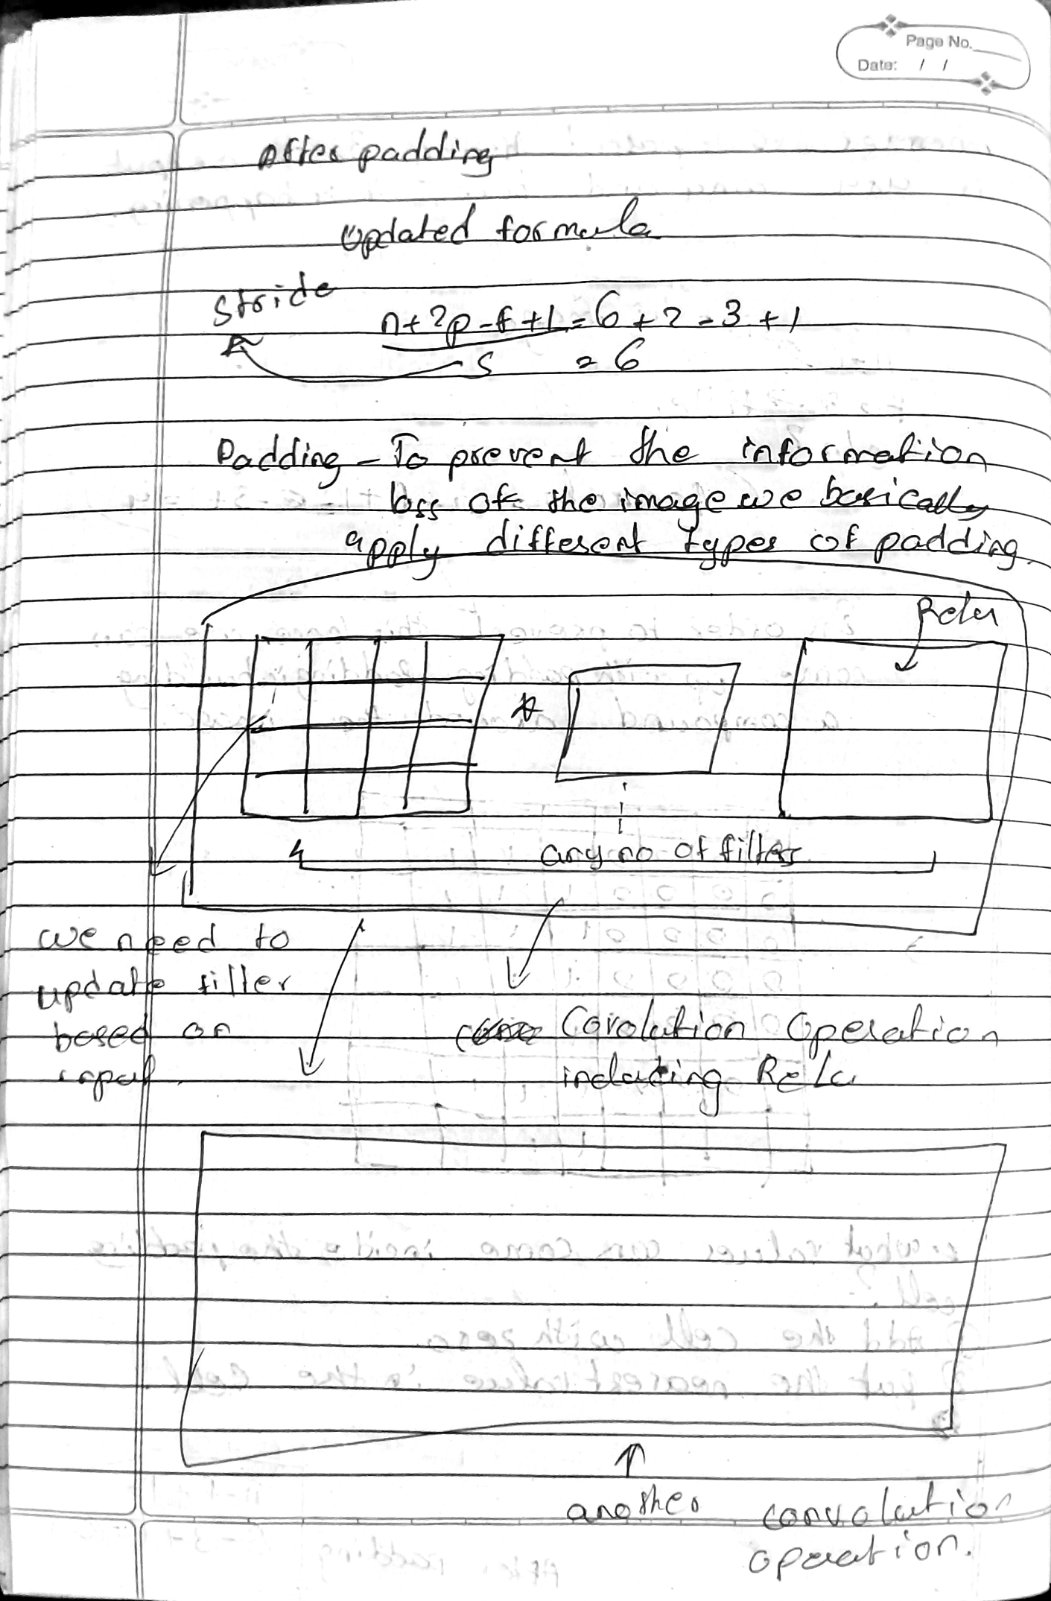 Page No.
Date: / /
After padding
Updated formula
Stride
n+2p-f+1 = 6+2-3+1
s = 6
Padding - To prevent the information
loss of the image we basically
apply different types of padding.
Relu
*
any no of filter
we need to
update filter
based on
input
Covolution Operation
including Relu
another convolution
operation.